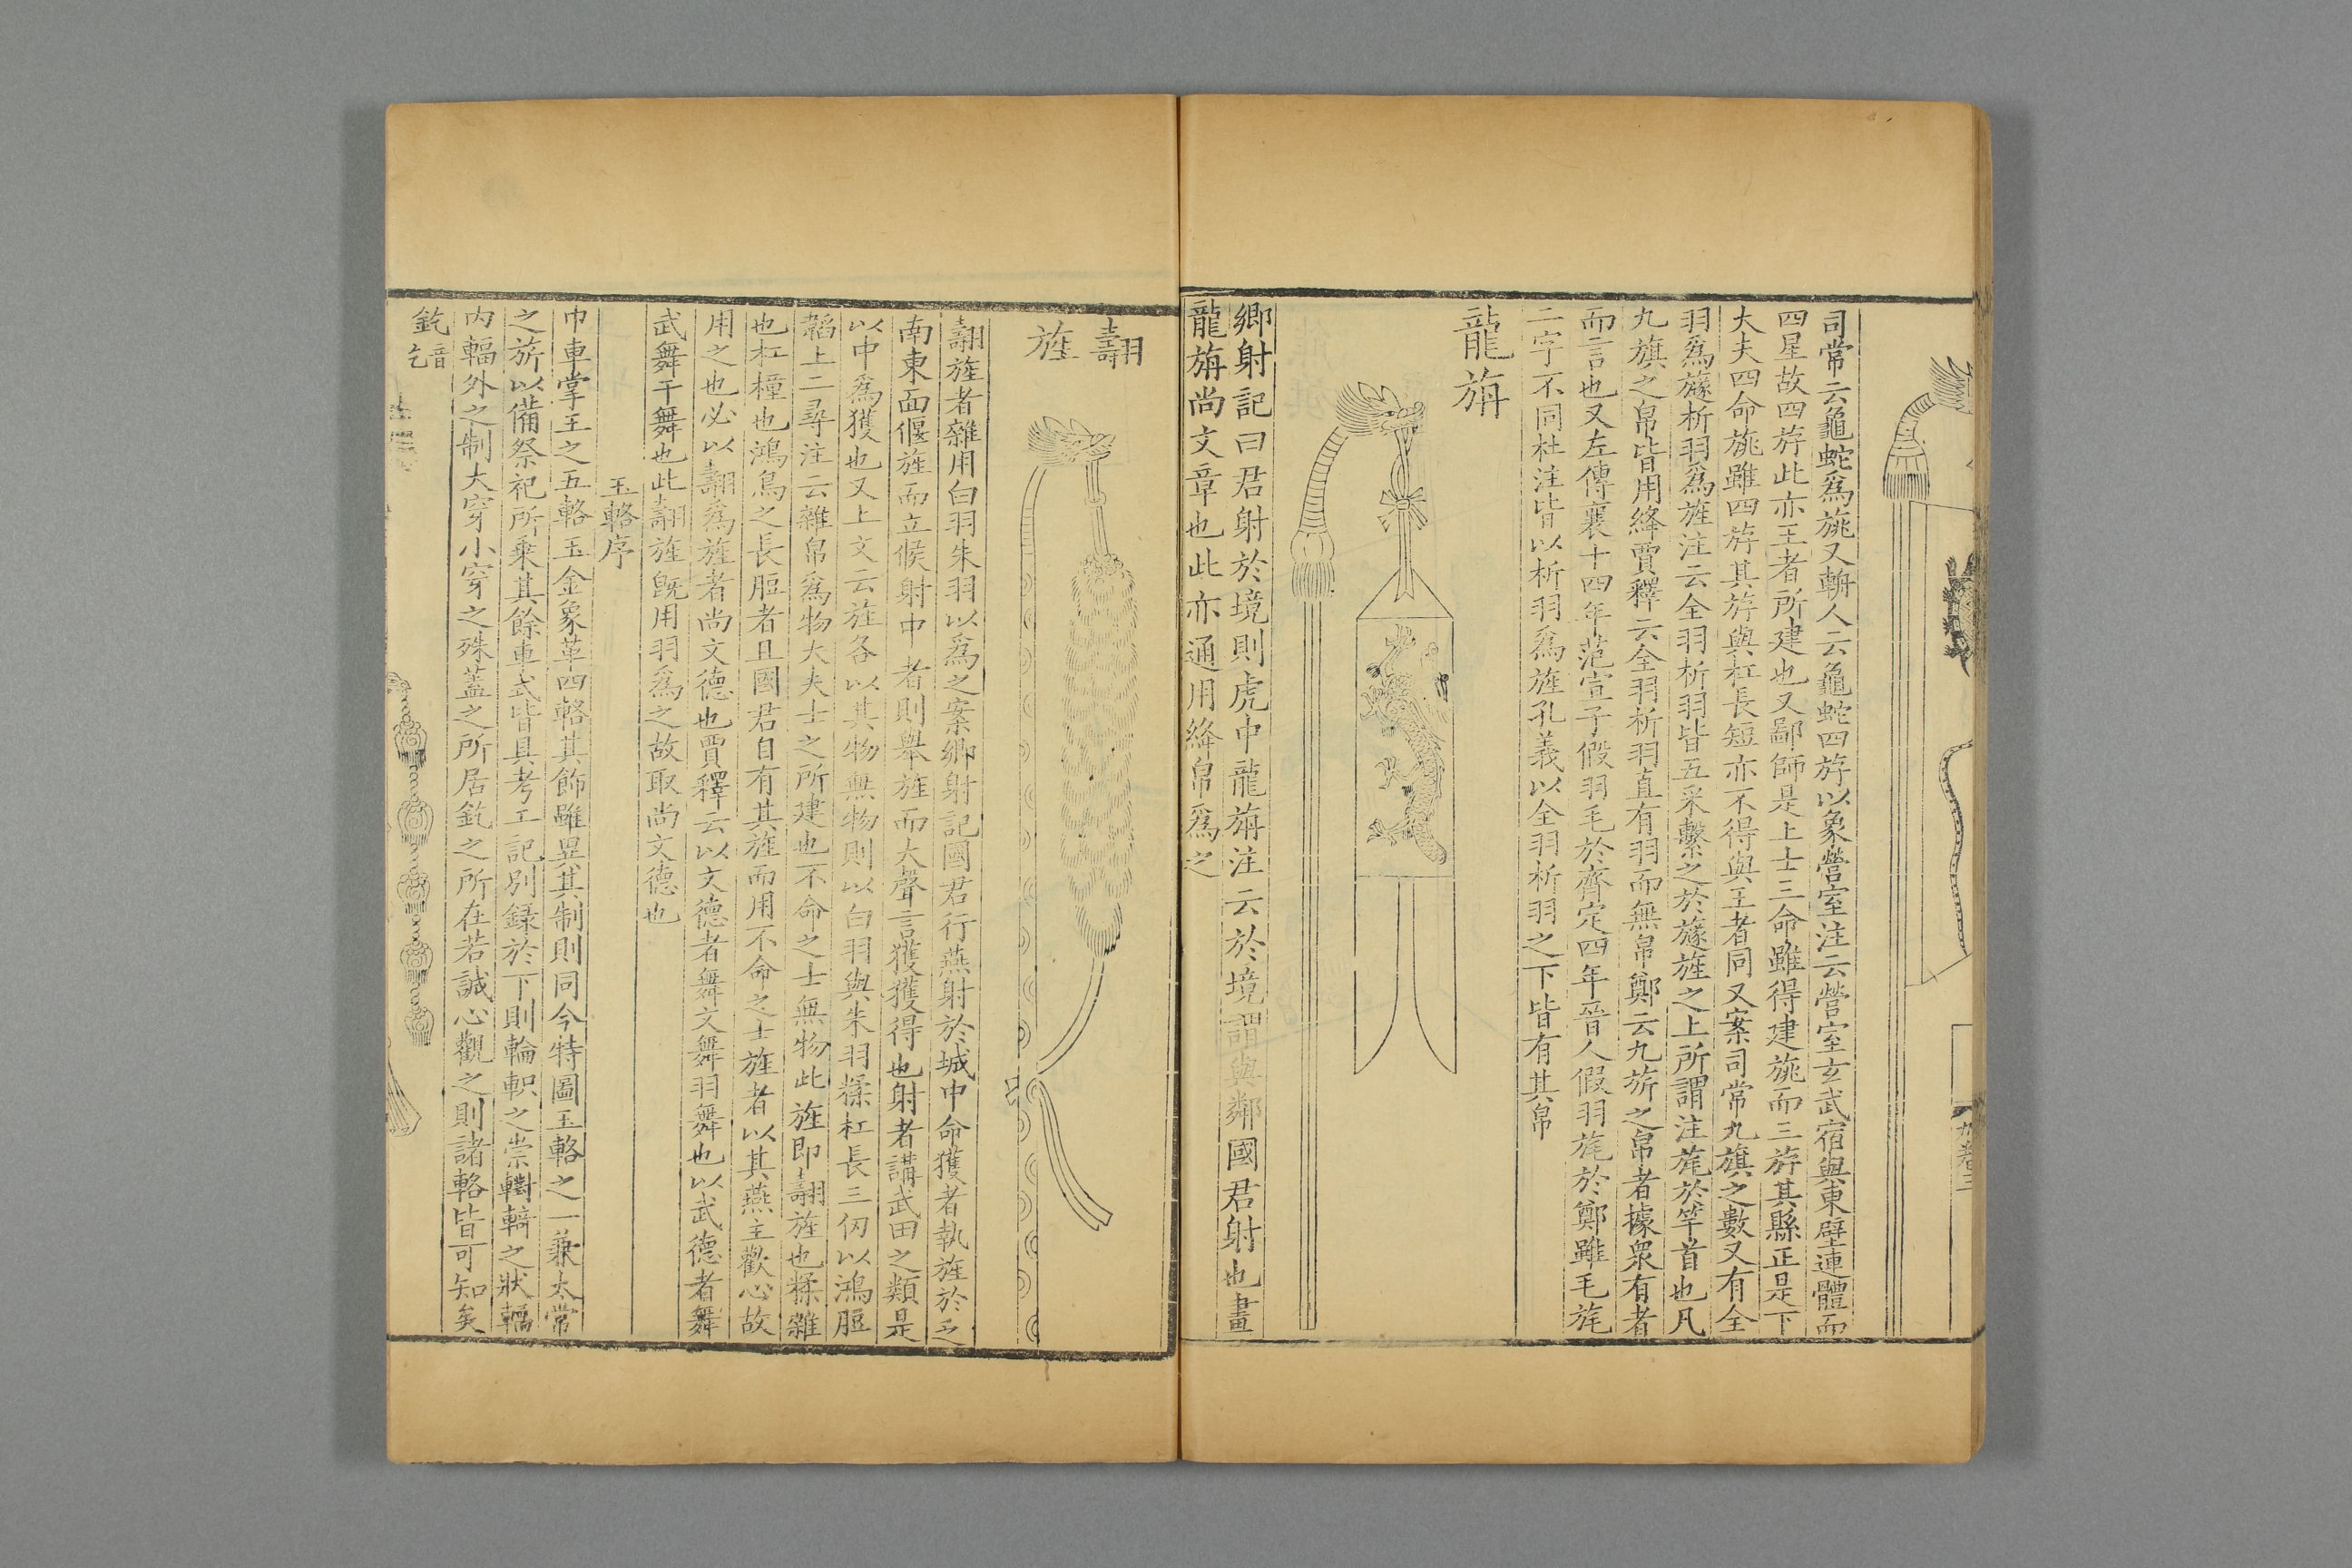 司常云龜蛇爲旐又輈人云龜蛇四斿以象營室注云營室玄武宿與東壁連體而
四星故四斿此亦王者所建也又鄙師是上士三命雖得建旐而三斿其縣正是下
大夫四命旐雖四斿其斿與杠長短亦不得與王者同又案司常九旗之數又有全
羽爲旞析羽爲旌注云全羽析羽皆五采繫之於旞旌之上所謂注旄於竿首也凡
九旗之帛皆用絳賈釋云全羽析羽直有羽而無帛鄭云九旂之帛者據衆有者
而言也又左傳襄十四年范宣子假羽毛於齊定四年晉人假羽旄於鄭雖毛旄
二字不同杜注皆以析羽爲旌孔義以全羽析羽之下皆有其帛
龍旜
鄉射記曰君射於境則虎中龍旜注云於境謂與鄰國君射也畫
龍旜尚文章也此亦通用絳帛爲之
翿
旌
翿旌者雜用白羽朱羽以爲之案鄉射記國君行燕射於城中命獲者執旌於乏
南東面偃旌而立候射中者則舉旌而大聲言獲獲得也射者講武田之類是
以中爲獲也又上文云旌各以其物無物則以白羽與朱羽糅杠長三仞以鴻脰
韜上二尋注云雜帛爲物大夫士之所建也不命之士無物此旌即翿旌也糅雜
也杠橦也鴻鳥之長脰者且國君自有其旌而用不命之士旌者以其燕主歡心故
用之也必以翿爲旌者尚文德也賈釋云以文德者舞文舞羽舞也以武德者舞
武舞干舞也此翿旌旣用羽爲之故取尚文德也
玉輅序
巾車掌王之五輅玉金象革四輅其飾雖異其制則同今特圖玉輅之一兼太常
之旂以備祭祀所乘其餘車式皆具考工記別録於下則輪軹之崇轛輢之狀輻
內輻外之制大穿小穿之殊蓋之所居釳之所在若誠心觀之則諸輅皆可知矣
釳音乞